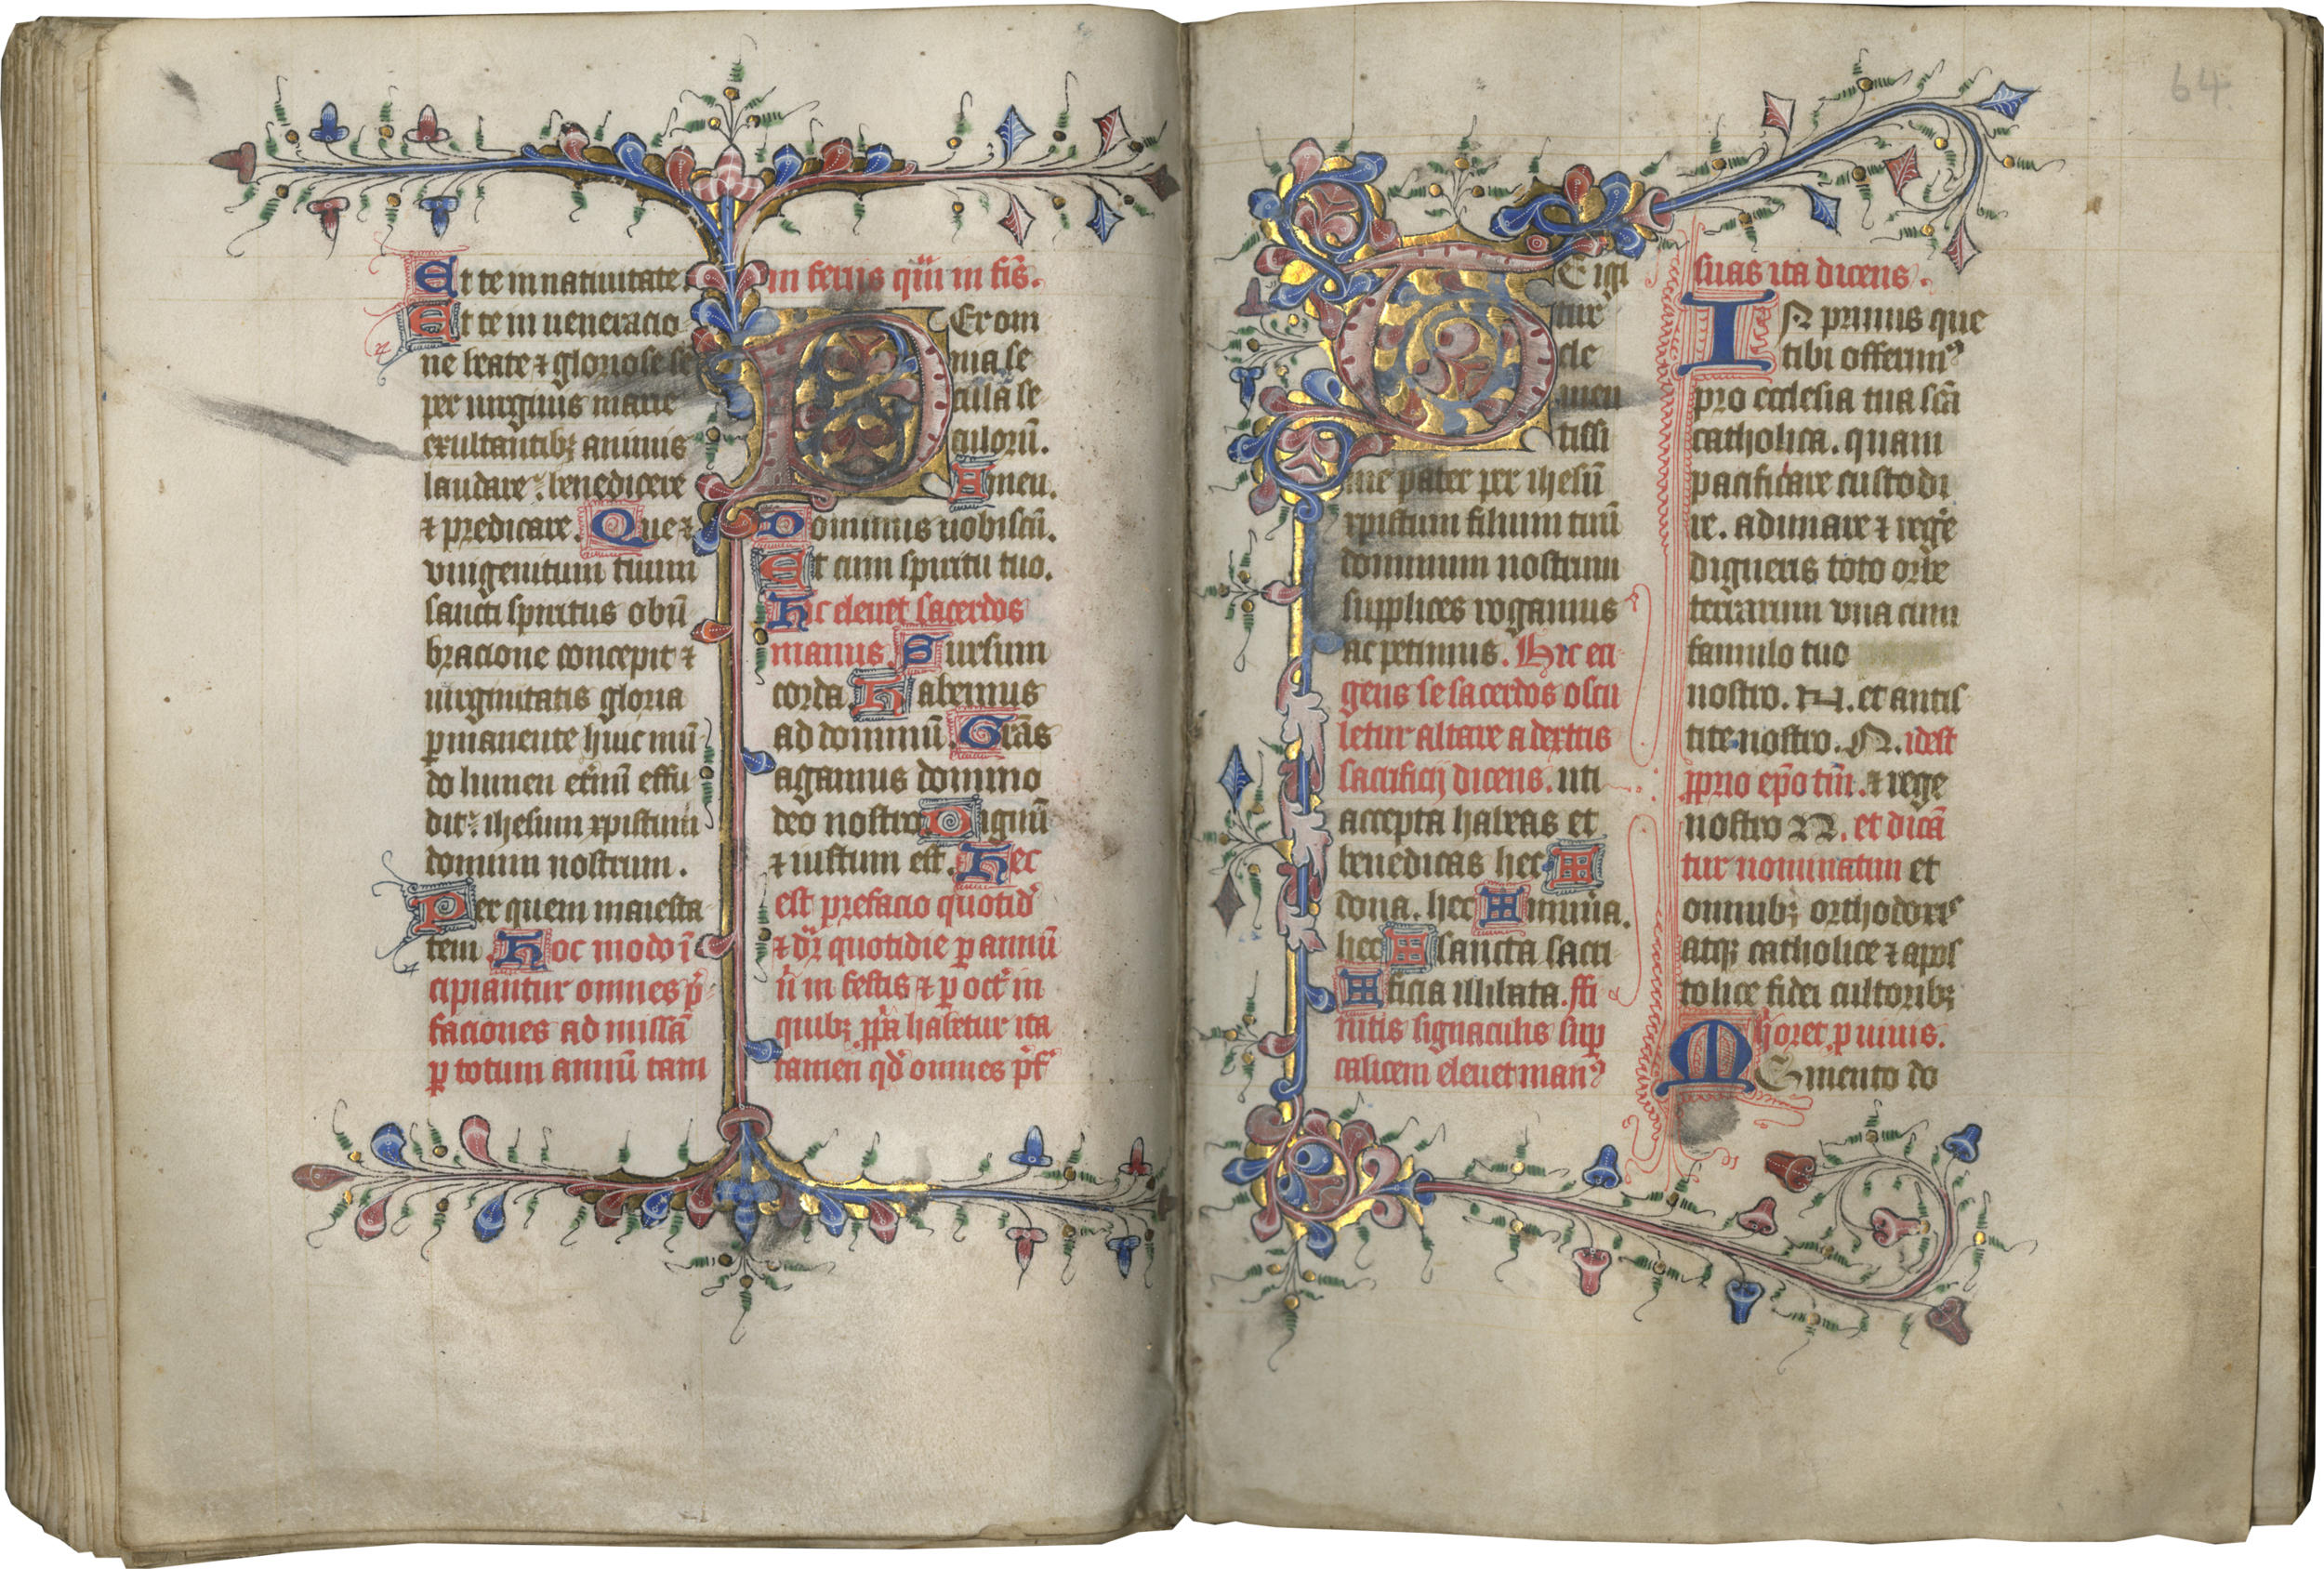 Et te in natiuitate.
Et te in ueneracio
ne beate ⁊ gloriose se
per uirginis marie
exultantibꝫ animis
laudare. benedicere
⁊ predicare. Que ⁊
vnigenitum tuum
sancti spiritus obū
bracione concepit ⁊
uirginitatis gloria
ꝑmanente huic mū
do lumen et̓nū effu
dit. ihesum xpistum
dominum nostrum.
Per quem maiesta
tem. Hoc modo ī
cipiantur omnes p̄
faciones ad missā
ꝑ totum annū tam
in feriis qͣm in fīs.
Per om
nia se
cula se
culorū.
Amen.
Dominus uobiscū.
Et cum spiritu tuo.
Hic eleuet sacerdos
manus. Sursum
corda. Habemus
ad dominū. Grās
agamus domino
deo nostro. Dignū
⁊ iustum est. Hec
est prefacio quotid̓
⁊ dr̄ quotidie ꝑ annū
n̄ in festis ⁊ ꝑ oct̓ in
quibꝫ ꝓp̄a habetur ita
tamen qd̓ omnes p̄f̓
TE igi
tur
cle
men
tissi
me pater per ihesū
xpistum filium tuū
dominum nostrum
supplices rogamus
ac petimus. Hic eri
gens se sacerdos oscu
letur altare a dextris
sacrificij dicens. uti
accepta habeas et
benedicas hec ✠
dona. hec ✠ munera.
hec ✠ sancta sacri
✠ ficia illibata. ffi
nitis signaculis sup
calicem eleuet manꝰ
suas ita dicens.
IN primis que
tibi offerimꝰ
pro ecclesia tua scā
catholica. quam
pacificare custodi
re. adunare ⁊ reg̓e
digneris toto orbe
terrarum vna cum
famulo tuo
nostro. N. et antis
tite nostro. N. idest
ꝓprio ep̄o tm̄. ⁊ rege
nostro N. et dicā
tur nominatim et
omnibꝫ orthodoxis
atqꝫ catholice ⁊ apos
tolice fidei cultoribꝫ
hic oret ꝑ uiuis.
MEmento do